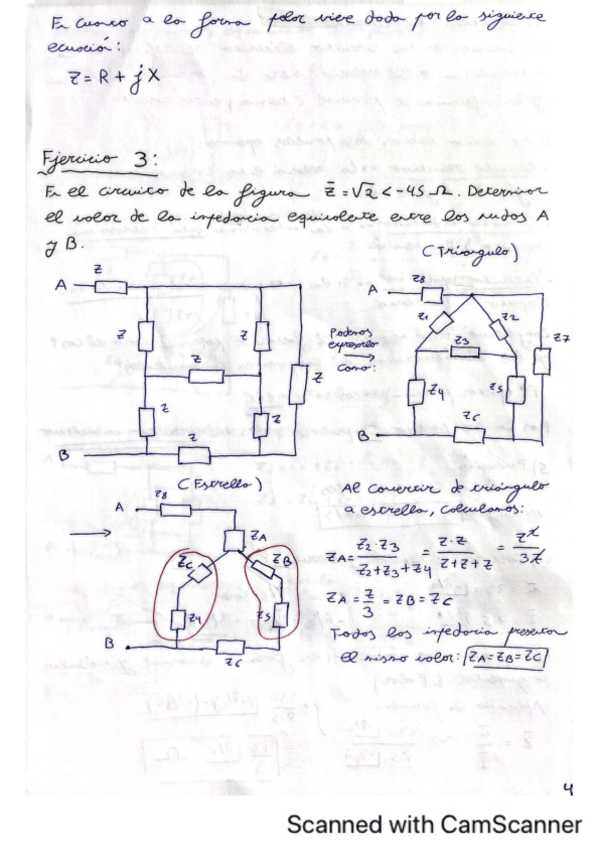 En cuanto a la forma polar viene dada por la siguiente
ecuación:
Z = R + j X
Ejercicio 3:
En el circuito de la figura Z̄ = √2 < -45 Ω. Determinar
el valor de la impedancia equivalente entre los nudos A
y B.
(Triángulo)
A Z
Z Z
Z Z
Z Z
B Z
Podemos
expresarlo
como:
A Z8
Z1 Z2
Z3 Z7
Z4 Z5
B Z6
(Estrella)
A Z8
ZA
ZC ZB
Z4 Z5
B Z6
Al convertir de triángulo
a estrella, calculamos:
ZA = Z2·Z3 / Z2+Z3+Z4 = Z·Z / Z+Z+Z = Z² / 3Z
ZA = Z/3 = ZB = ZC
Todas las impedancia presentan
el mismo valor: ZA=ZB=ZC
4
Scanned with CamScanner